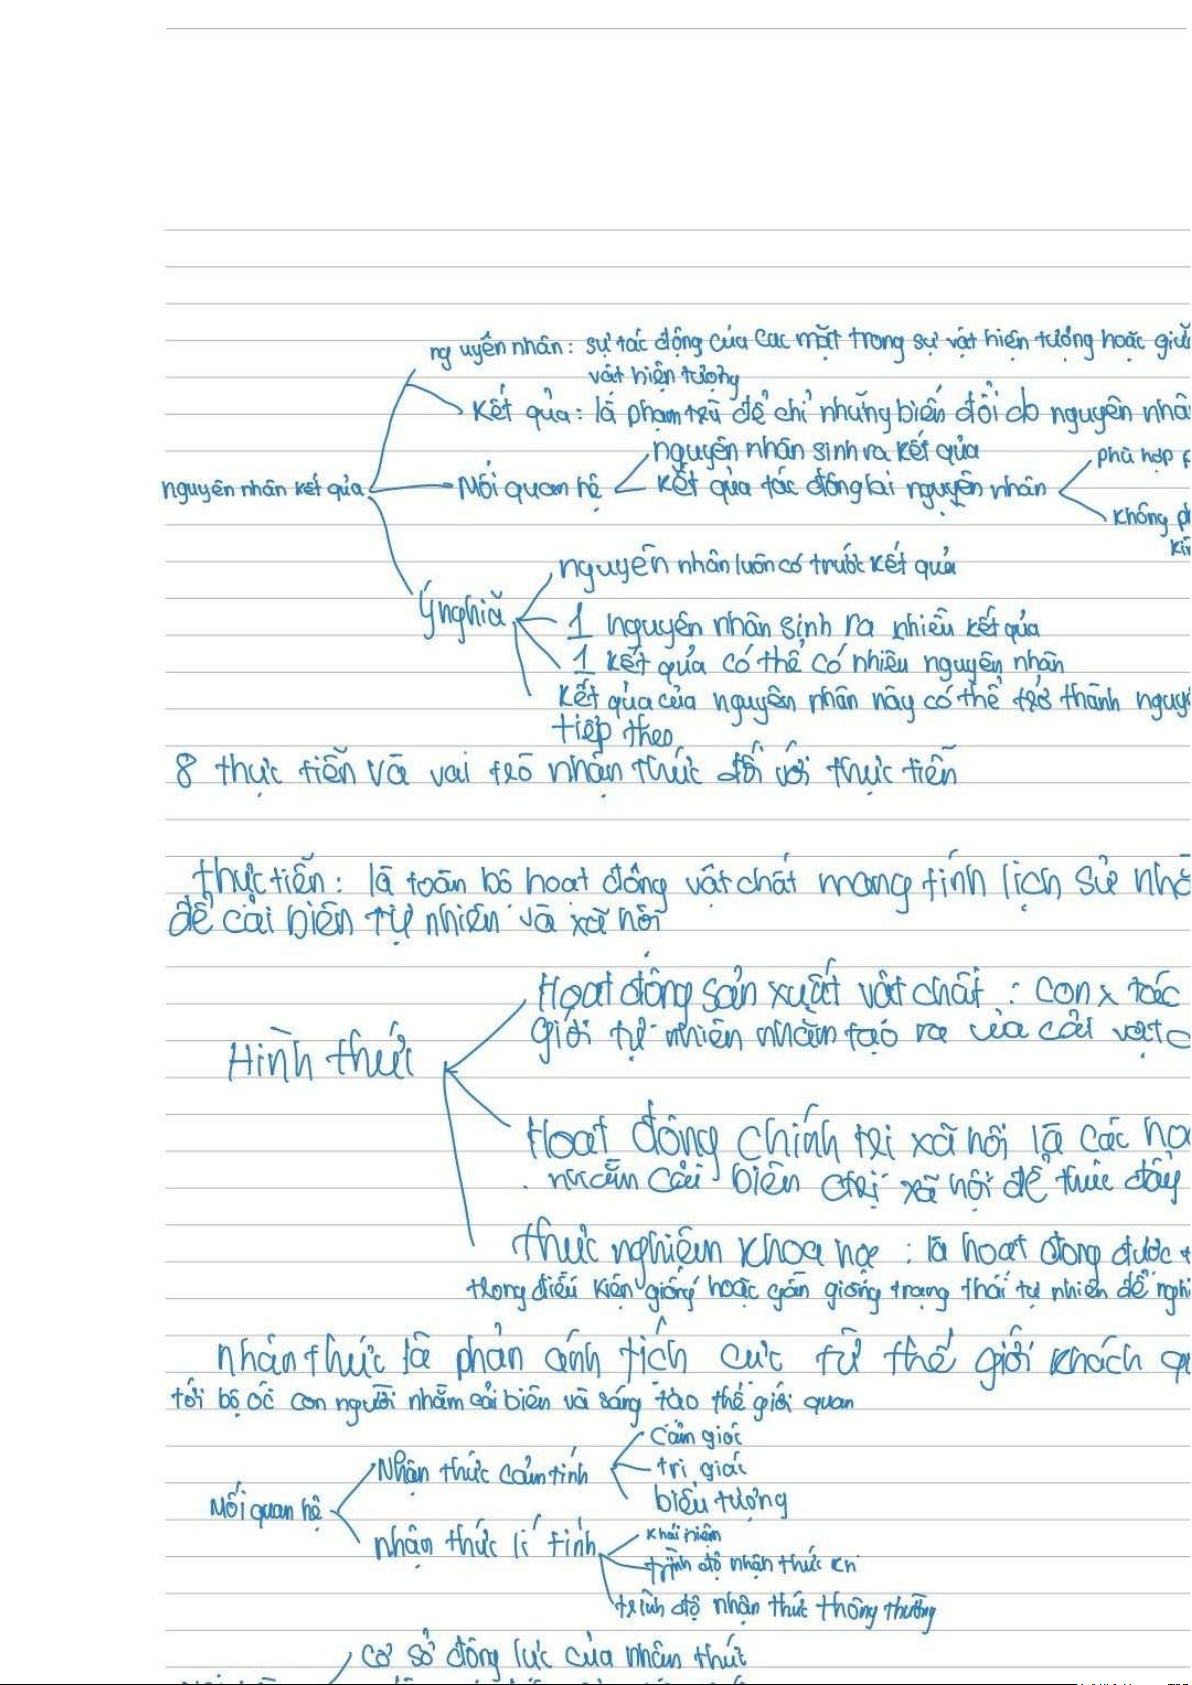 nguyên nhân: sự tác động của các mặt trong sự vật hiện tượng hoặc giữ
vật hiện tượng
Kết quả: là phạm trù để chỉ những biến đổi do nguyên nhâ
nguyên nhân sinh ra kết quả
phù hợp
nguyên nhân kết quả
Mối quan hệ
Kết quả tác động lại nguyên nhân
Không ph
nguyên nhân luôn có trước kết quả
Ý nghĩa
1 nguyên nhân sinh ra nhiều kết quả
1 kết quả có thể có nhiều nguyên nhân
Kết quả của nguyên nhân này có thể trở thành nguy
tiếp theo
8 thực tiễn và vai trò nhận thức đối với thực tiễn
thực tiễn: là toàn bộ hoạt động vật chất mang tính lịch sử nh
để cải biến tự nhiên và xã hội
Hoạt động sản xuất vật chất: con x tác
giới tự nhiên nhằm tạo ra của cải vật c
Hình thức
Hoạt động chính trị xã hội là các ho
nhằm cải biên xã hội để thúc đẩy
thực nghiệm khoa học: là hoạt động được t
trong điều kiện giống hoặc gần giống trạng thái tự nhiên để nghi
nhận thức là phản ánh tích cực từ thế giới khách q
tới bộ óc con người nhằm cải biên và sáng tạo thế giới quan
Cảm giác
Nhận thức cảm tính
tri giác
biểu tượng
Mối quan hệ
khái niệm
nhận thức lí tính
trình độ nhận thức kh
trình độ nhận thức thông thường
cơ sở động lực của nhận thức